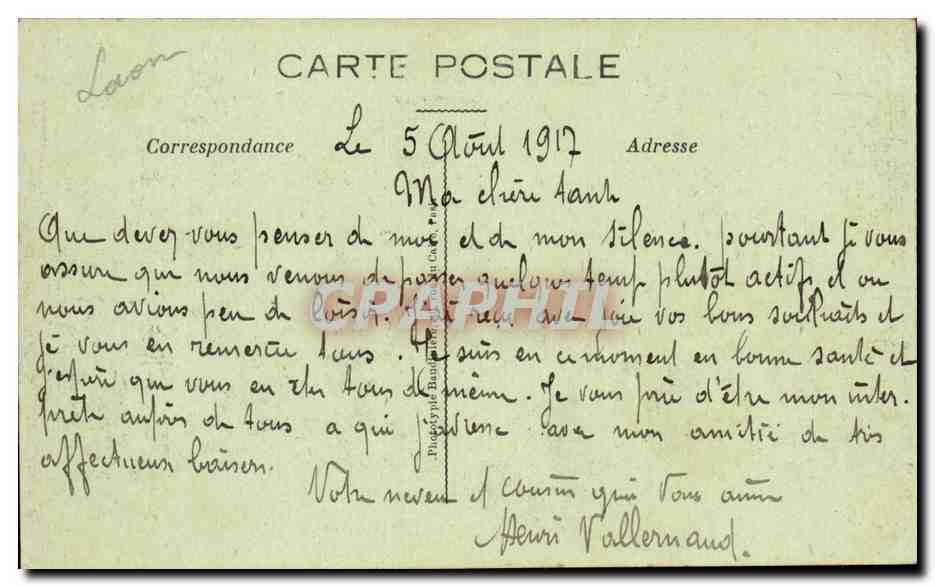 Laon
CARTE POSTALE
Correspondance Le 5 Août 1917 Adresse
Ma chère tante
Que devez-vous penser de moi et de mon silence. pourtant je vous
assure que nous venons de passer quelques temps plutôt actifs et ou
nous avions peu de loisir. J'ai reçu avec joie vos bons souhaits et
je vous en remercie tous. Je suis en ce moment en bonne santé et
j'espère que vous en êtes tous de même. Je vous prie d'être mon inter.
prète auprès de tous a qui j'adresse avec mon amitié de très
affectueux baisers.
Votre neveu et cousin qui vous aime
Henri Vallernaud.
Phototypie Baudinière
CPARHTI